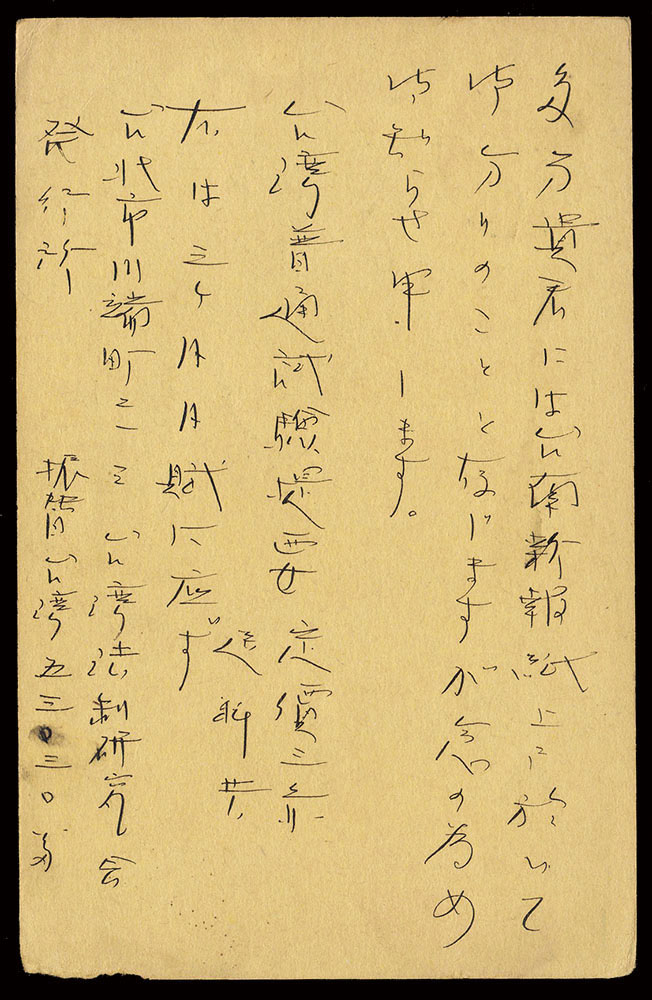 多分貴君には台南新報紙上に於いて
御分りのことと存じますが念の為め
御知らせ申します。
台湾普通試験提要 定價三円
送料共
右は三ヶ月月賦に応ず
台北市川端町三一三 台湾法制研究会
発行所 振替台湾五三〇三〇番